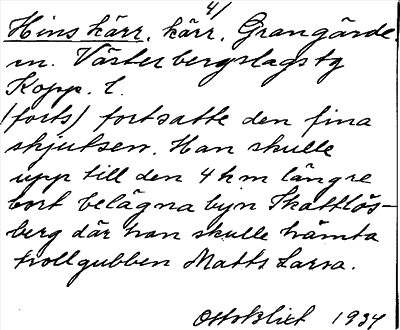 4/
Hins kärr, kärr, Grangärde
m. Västerbergslags tg
Kopp. l.
(forts) fortsatte den fina
skjutsen. Han skulle
upp till den 4 km längre
bort belägna byn Skattlös-
berg där han skulle hämta
trollgubben Matts Larsa.
Otto Blixt 1934